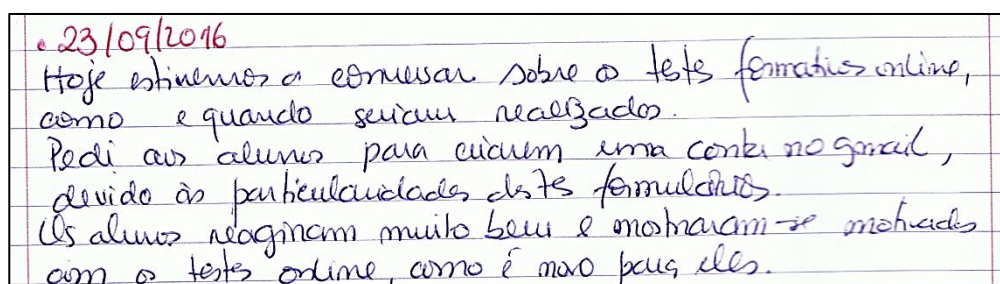 . 23/09/2016
Hoje estivemos a conversar sobre os testes formativos online,
como e quando seriam realizados.
Pedi aos alunos para criarem uma conta no gmail,
devido às particularidades destes formulários.
Os alunos reagiram muito bem e mostraram-se motivados
com os testes online, como é novo para eles.